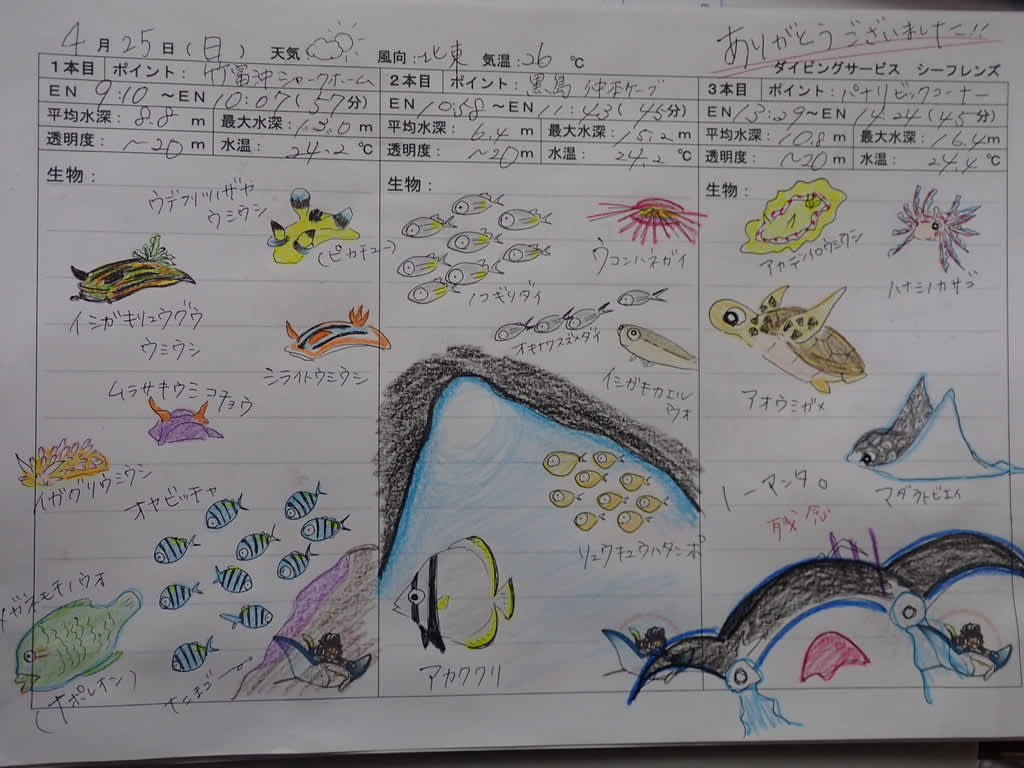 4月25日(日) 天気 風向:北東 気温:26℃
ありがとうございましたー!!
ダイビングサービス シーフレンズ
1本目 ポイント:竹富沖シャークホーム
EN 9:10 ~EN 10:07(57分)
平均水深:8.8m 最大水深:13.0m
透明度:~20m 水温:24.2℃
生物:
ウデフリツノザヤ
ウミウシ
(ピカチュー)
イシガキリュウグウ
ウミウシ
シライトウミウシ
ムラサキウミコチョウ
イガグリウミウシ
オヤビッチャ
メガネモチノウオ
(ナポレオン)
たまご→
2本目 ポイント:黒島 仲本ケーブ
EN 10:58 ~EN 11:43(45分)
平均水深:6.4m 最大水深:15.2m
透明度:~20m 水温:24.2℃
生物:
ウコンハネガイ
ノコギリダイ
オキナワスズメダイ
イシガキカエル
ウオ
リュウキュウハタンポ
アカククリ
3本目 ポイント:パナリビッグコーナー
EN 13:39~EN 14:24(45分)
平均水深:10.8m 最大水深:16.4m
透明度:~20m 水温:24.4℃
生物:
アカテンイロウミウシ
ハナミノカサゴ
アオウミガメ
マダラトビエイ
ノーマンタ。
残念